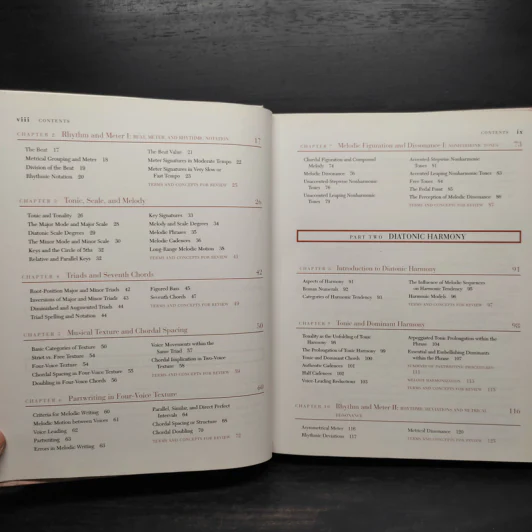 viii CONTENTS
CHAPTER 2 Rhythm and Meter I: BEAT, METER, AND RHYTHMIC NOTATION 17
The Beat 17
Metrical Grouping and Meter 18
Division of the Beat 19
Rhythmic Notation 20
The Beat Value 21
Meter Signatures in Moderate Tempos 22
Meter Signatures in Very Slow or
Fast Tempos 23
TERMS AND CONCEPTS FOR REVIEW
CHAPTER 3 Tonic, Scale, and Melody
Tonic and Tonality 26
The Major Mode and Major Scale 28
Diatonic Scale Degrees 29
The Minor Mode and Minor Scale 30
Keys and the Circle of 5ths 32
Relative and Parallel Keys 32
Key Signatures 33
Melody and Scale Degrees 34
Melodic Phrases 35
Melodic Cadences 36
Long-Range Melodic Motion 38
TERMS AND CONCEPTS FOR REVIEW
CHAPTER 4 Triads and Seventh Chords 42
Root-Position Major and Minor Triads 42
Inversions of Major and Minor Triads 43
Diminished and Augmented Triads 44
Triad Spelling and Notation 44
Figured Bass 45
Seventh Chords 47
TERMS AND CONCEPTS FOR REVIEW 49
CHAPTER 5 Musical Texture and Chordal Spacing 50
Basic Categories of Texture 50
Strict vs. Free Texture 54
Four-Voice Texture 54
Chordal Spacing in Four-Voice Texture 55
Doubling in Four-Voice Chords 56
Voice Movements within the
Same Triad 57
Chordal Implication in Two-Voice
Texture 58
TERMS AND CONCEPTS FOR REVIEW
CHAPTER 6 Partwriting in Four-Voice Texture 60
Criteria for Melodic Writing 60
Melodic Motion between Voices 61
Voice-Leading 62
Partwriting 63
Errors in Melodic Writing 63
Parallel, Similar, and Direct Perfect
Intervals 64
Chordal Spacing or Structure 66
Chordal Doubling 70
TERMS AND CONCEPTS FOR REVIEW 72
CONTENTS ix
CHAPTER 7 Melodic Figuration and Dissonance I: 73
Chordal Figuration and Compound
Melody 74
Melodic Dissonance 76
Unaccented Stepwise Nonharmonic
Tones 76
Unaccented Leaping Nonharmonic
Tones 79
Accented Stepwise Nonharmonic
Tones 81
Accented Leaping Nonharmonic Tones 83
Free Tones 84
The Pedal Point 85
The Perception of Melodic Dissonance 86
TERMS AND CONCEPTS FOR REVIEW
PART TWO DIATONIC HARMONY
Introduction to Diatonic Harmony 91
Aspects of Harmony 91
Roman Numerals 92
Categories of Harmonic Tendency 93
The Influence of Melodic Sequences
on Harmonic Tendency 95
Harmonic Models 96
TERMS AND CONCEPTS FOR REVIEW 97
CHAPTER 9 Tonic and Dominant Harmony 98
Tonality as the Unfolding of Tonic
Harmony 98
The Prolongation of Tonic Harmony 99
Tonic and Dominant Chords 100
Authentic Cadences 101
Half Cadences 102
Voice-Leading Reductions 103
Arpeggiated Tonic Prolongation within the
Phrase 104
Essential and Embellishing Dominants
within the Phrase 107
TERMS AND CONCEPTS FOR REVIEW
CHAPTER 10 Rhythm and Meter II: 116
DISSONANCE
Asymmetrical Meter 116
Rhythmic Deviations 117
Metrical Dissonance 120
TERMS AND CONCEPTS FOR REVIEW